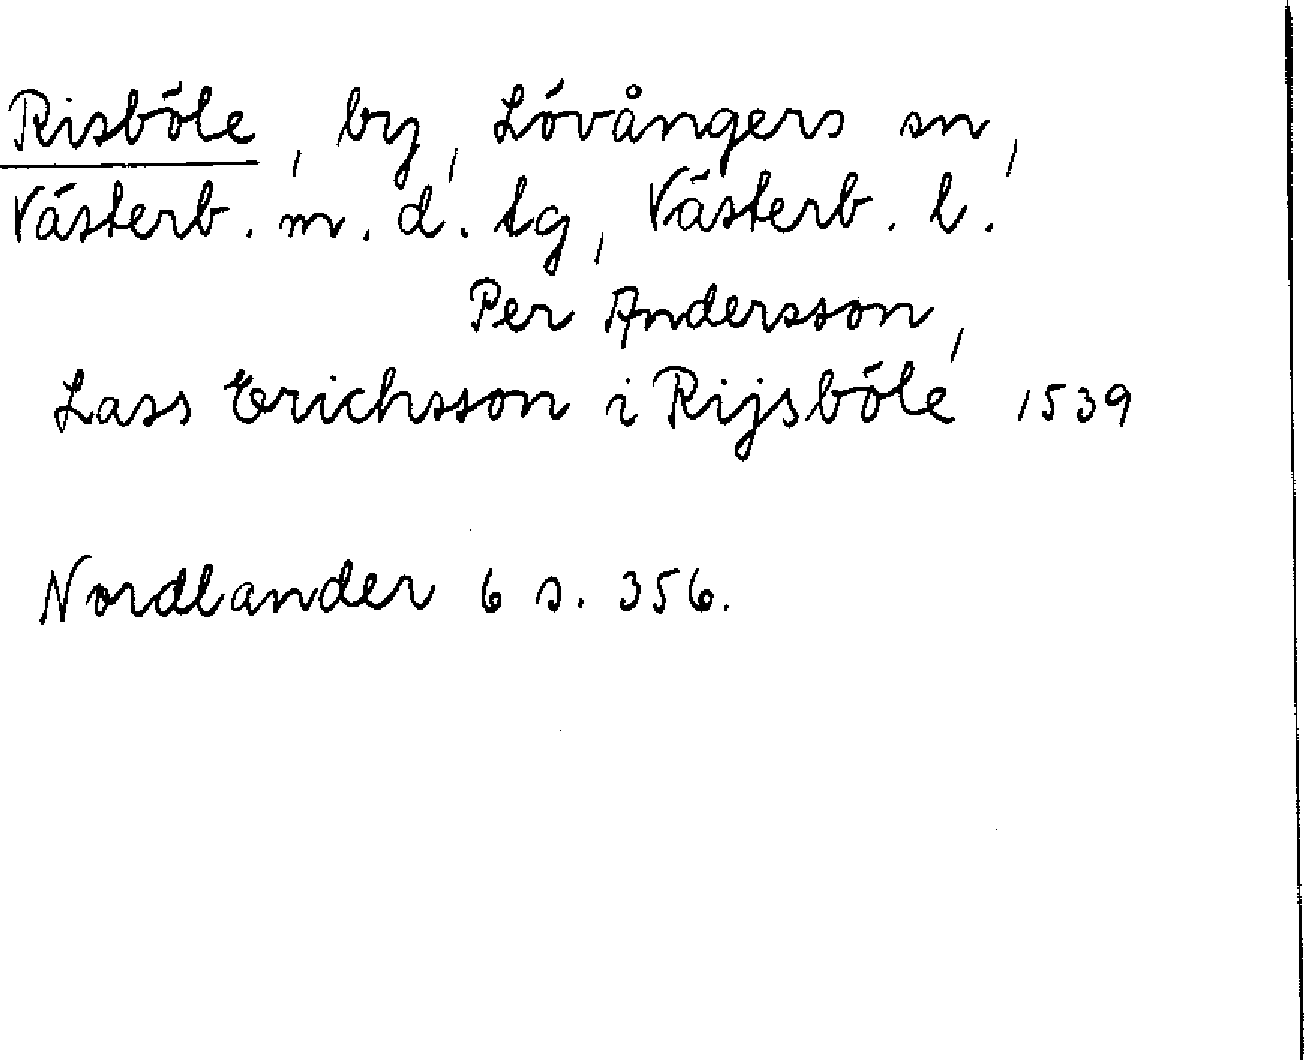 Risböle, by, Lövångers sn,
Västerb. m. d. tg, Västerb. l.
Per Andersson,
Lass Erichsson i Rijsböle 1539
Nordlander 6 s. 356.